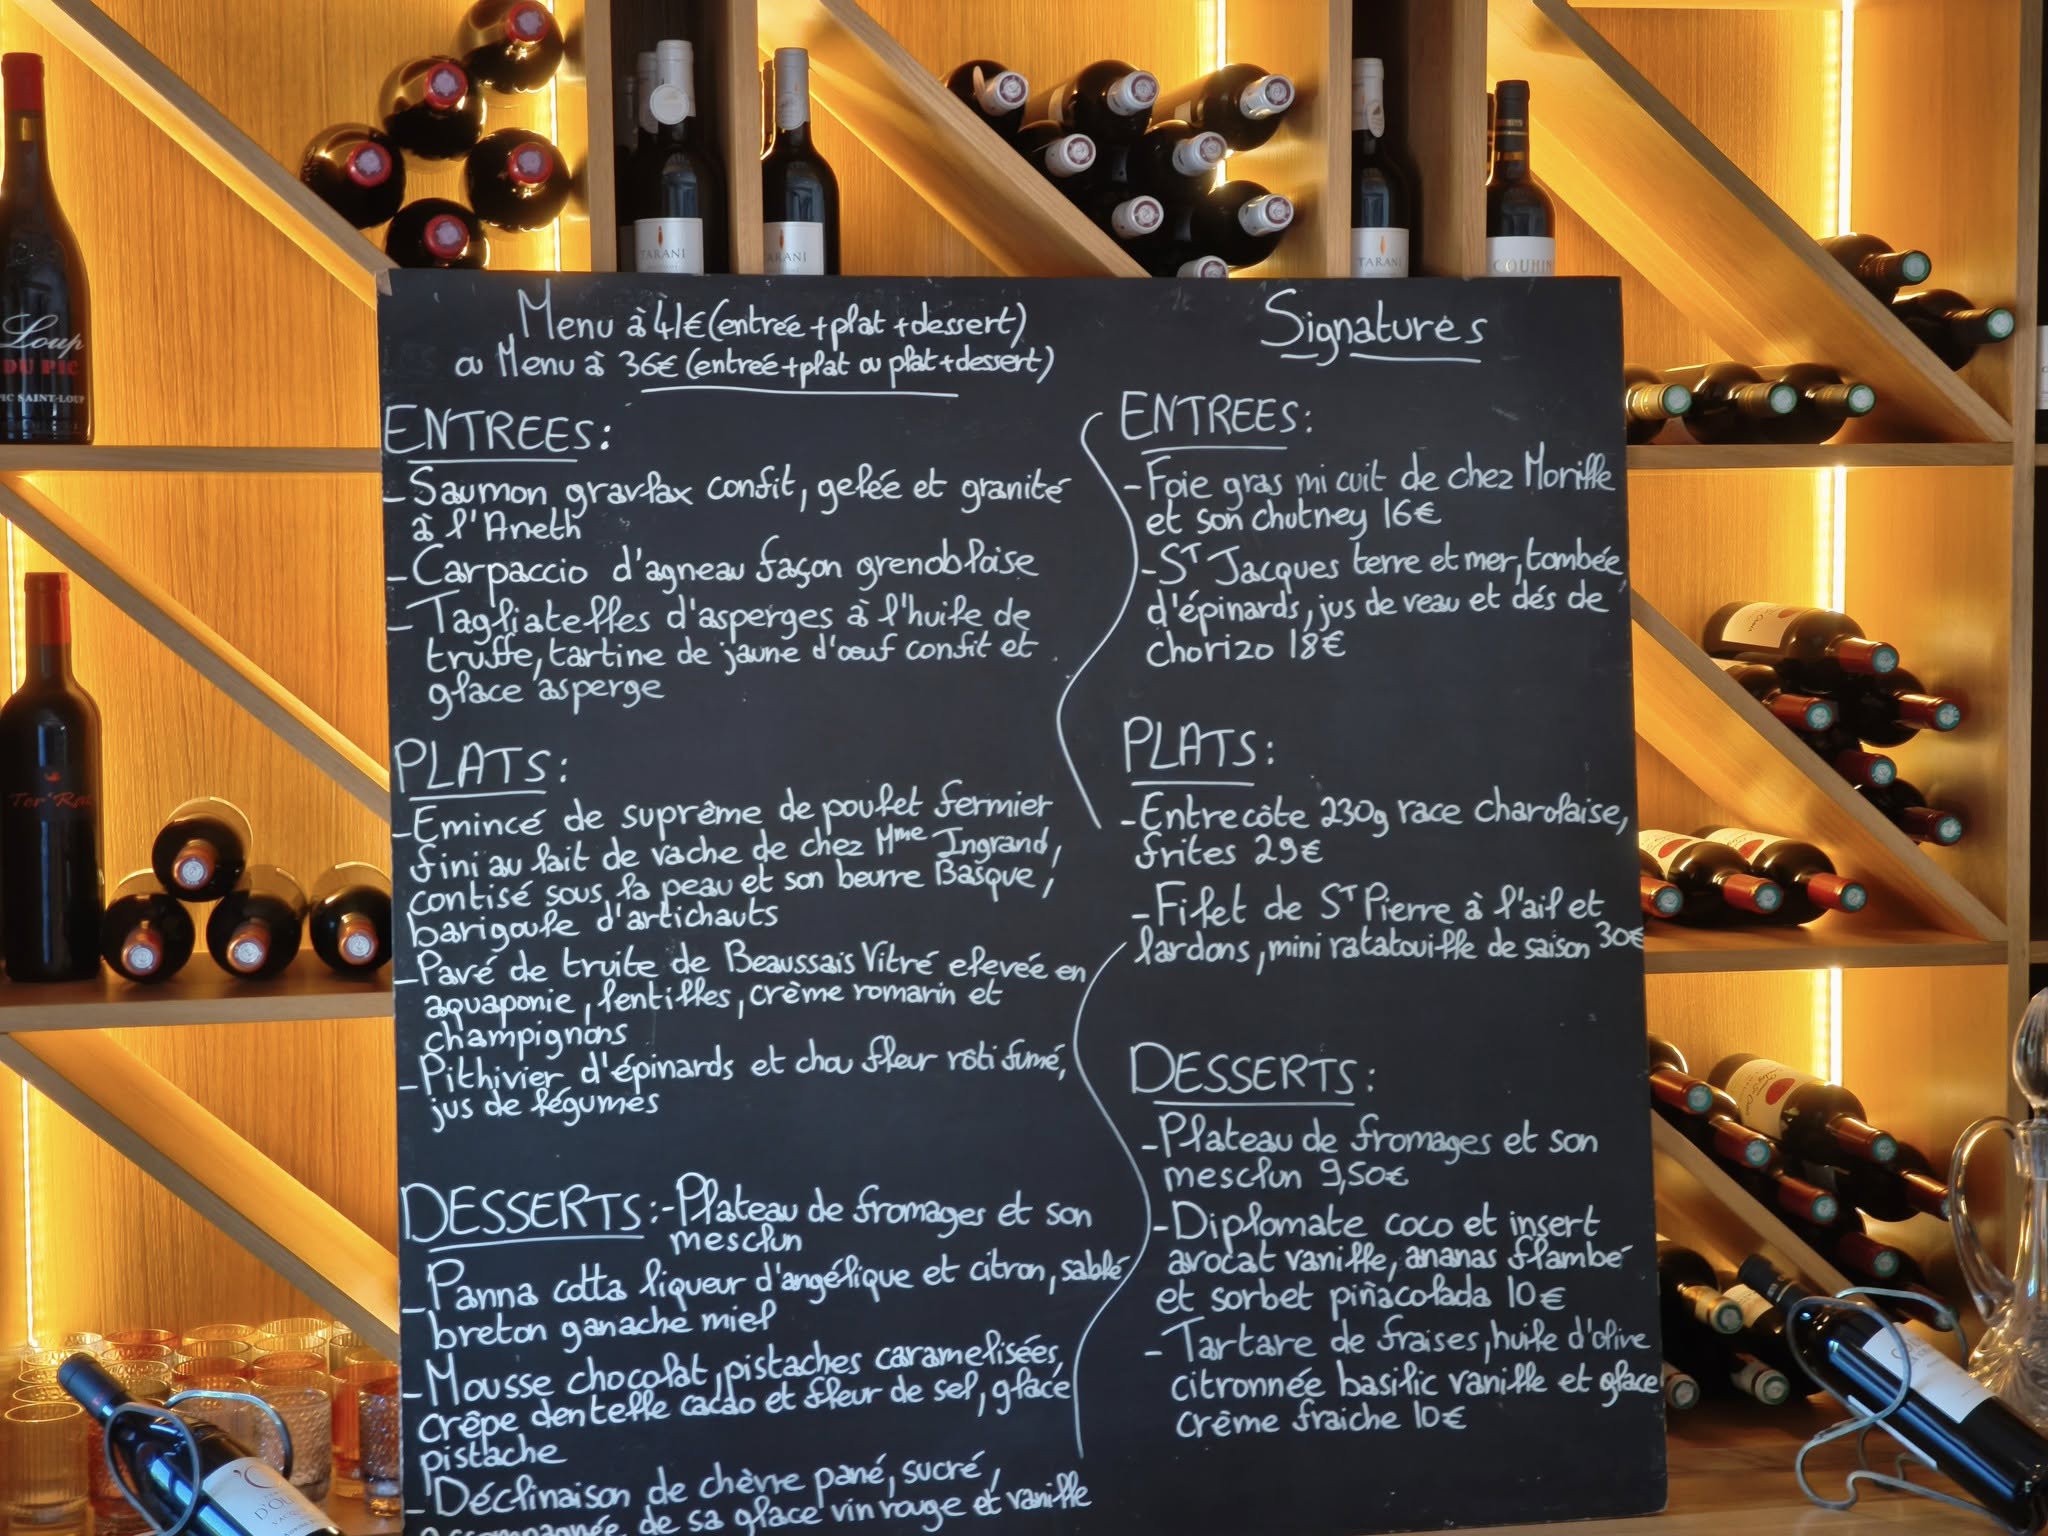 Loup
DU PIC
PIC SAINT-LOUP
TARANI
TARANI
TARANI
COUHIN
Tor'Ra
Menu à 41€ (entrée + plat + dessert)
ou Menu à 36€ (entreé+plat ou plat+dessert)
ENTREES:
- Saumon gravlax confit, gelée et granité
à l'Aneth
- Carpaccio d'agneau façon grenobloise
- Tagliatelles d'asperges à l'huile de
truffe, tartine de jaune d'oeuf confit et
glace asperge
PLATS:
- Emincé de suprême de poulet fermier
fini au lait de vache de chez Mme Ingrand,
contisé sous la peau et son beurre Basque,
barigoule d'artichauts
- Pavé de truite de Beaussais Vitré elevée en
aquaponie, lentilles, crème romarin et
champignons
- Pithivier d'épinards et chou fleur rôti fumé,
jus de légumes
DESSERTS: - Plateau de fromages et son
mesclun
- Panna cotta liqueur d'angélique et citron, sablé
breton ganache miel
- Mousse chocolat, pistaches caramelisées,
crêpe dentelle cacao et fleur de sel, glace
pistache
- Déclinaison de chèvre pané, sucré,
accompagnée de sa glace vin rouge et vanille
Signatures
ENTREES:
- Foie gras mi cuit de chez Morille
et son chutney 16€
- ST Jacques terre et mer, tombée
d'épinards, jus de veau et dés de
chorizo 18€
PLATS:
- Entrecôte 230g race charolaise,
frites 29€
- Filet de ST Pierre à l'ail et
lardons, mini ratatouille de saison 30€
DESSERTS:
- Plateau de fromages et son
mesclun 9,50€
- Diplomate coco et insert
avocat vanille, ananas flambé
et sorbet piñacolada 10€
- Tartare de fraises, huile d'olive
citronnée basilic vanille et glace
crème fraiche 10€